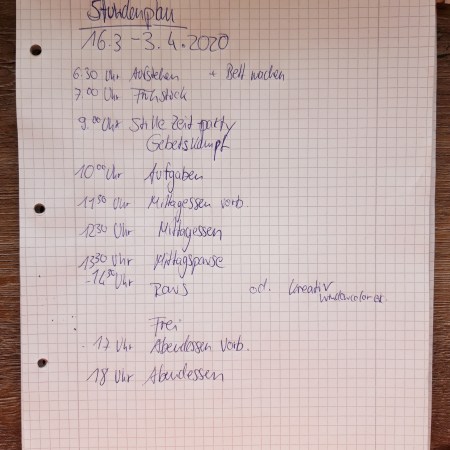 Stundenplan
16.3 - 3.4.2020
6.30 Uhr Aufstehen + Bett machen
7.00 Uhr Frühstück
9.00 Uhr Stille Zeit party
Gebetskampf
10.00 Uhr Aufgaben
11.30 Uhr Mittagessen vorb.
12.30 Uhr Mittagessen
13.30 Uhr Mittagspause
- 14.30 Uhr
od. kreativ
Frei
17 Uhr Abendessen vorb.
18 Uhr Abendessen